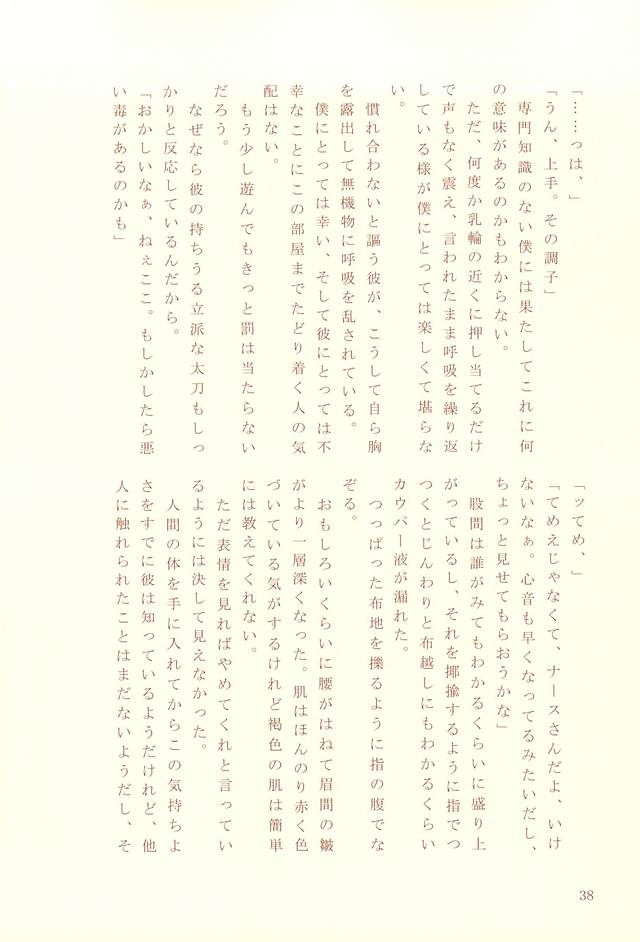 「……っは、」
「うん、上手。その調子」
　専門知識のない僕には果たしてこれに何
の意味があるのかもわからない。
　ただ、何度か乳輪の近くに押し当てるだけ
で声もなく震え、言われたまま呼吸を繰り返
している様が僕にとっては楽しくて堪らな
い。
　慣れ合わないと謳う彼が、こうして自ら胸
を露出して無機物に呼吸を乱されている。
　僕にとっては幸い、そして彼にとっては不
幸なことにこの部屋までたどり着く人の気
配はない。
　もう少し遊んでもきっと罰は当たらない
だろう。
　なぜなら彼の持ちうる立派な太刀もしっ
かりと反応しているんだから。
「おかしいなぁ、ねぇここ。もしかしたら悪
い毒があるのかも」
「ッてめ、」
「てめえじゃなくて、ナースさんだよ、いけ
ないなぁ。心音も早くなってるみたいだし、
ちょっと見せてもらおうかな」
　股間は誰がみてもわかるくらいに盛り上
がっているし、それを揶揄するように指でつ
つくとじんわりと布越しにもわかるくらい
カウパー液が漏れた。
　つっぱった布地を擽るように指の腹でな
ぞる。
　おもしろいくらいに腰がはねて眉間の皺
がより一層深くなった。肌はほんのり赤く色
づいている気がするけれど褐色の肌は簡単
には教えてくれない。
　ただ表情を見ればやめてくれと言ってい
るようには決して見えなかった。
　人間の体を手に入れてからこの気持ちよ
さをすでに彼は知っているようだけれど、他
人に触れられたことはまだないようだし、そ
38